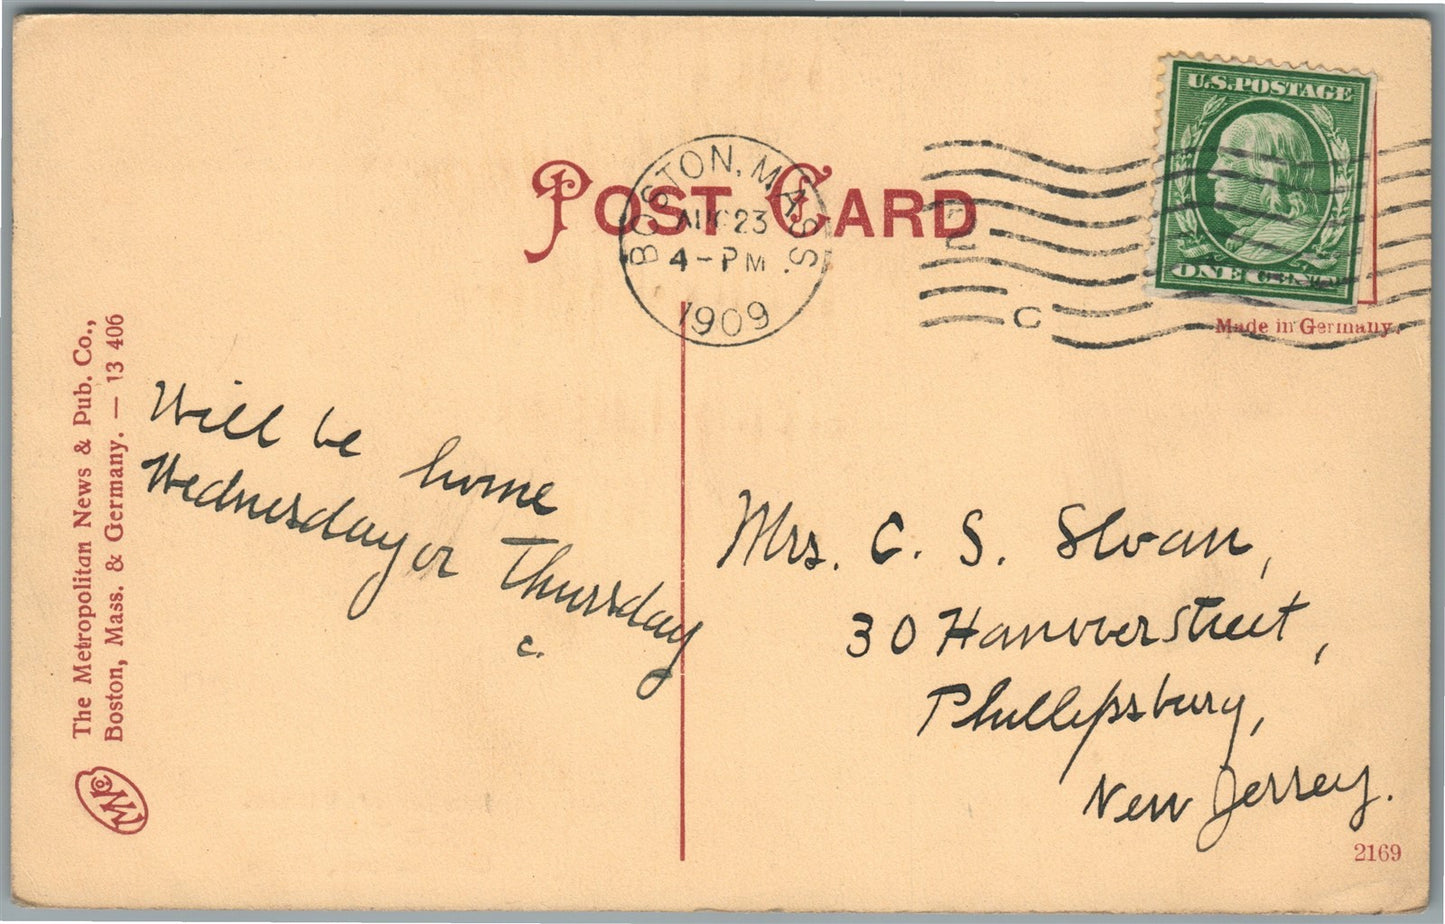 U.S. POSTAGE
ONE CENT
POST CARD
BOSTON, MASS.
AUG 23
4-PM
1909
2
C
Made in Germany.
The Metropolitan News & Pub. Co.,
Boston, Mass. & Germany. — 13 406
Will be home
Wednesday or Thursday
C.
Mrs. C. S. Sloan,
30 Hanover Street,
Phillipsburg,
New Jersey.
2169